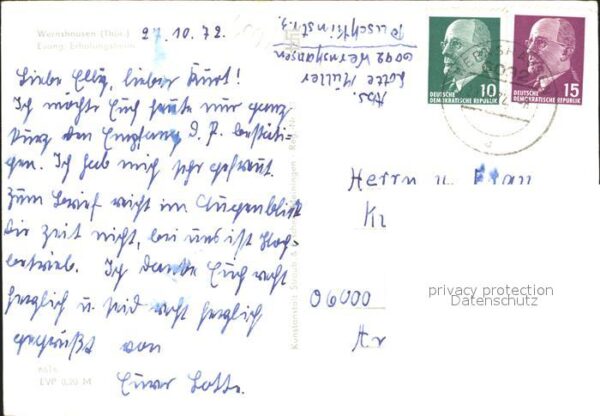 Wernshausen (Thür.)
Evang. Erholungsheim
27.10.72
Liebe Elly, lieber Kurt!
Ich möchte Euch heute nur ganz
kurz den Empfang d. P. bestäti-
gen. Ich hab mich sehr gefreut.
Zum Brief reicht im Augenblick
die Zeit nicht, bei uns ist Hoch-
betrieb. Ich danke Euch recht
herzlich u. seid recht herzlich
gegrüßt von
Eurer Lotte.
EVP 0,20 M
Abs.
Lotte Müller
6092 Wernshausen
Puschkinstr. 3
10
DEUTSCHE
DEMOKRATISCHE REPUBLIK
15
DEUTSCHE
DEMOKRATISCHE REPUBLIK
Herrn u. Frau
06000
privacy protection
Datenschutz